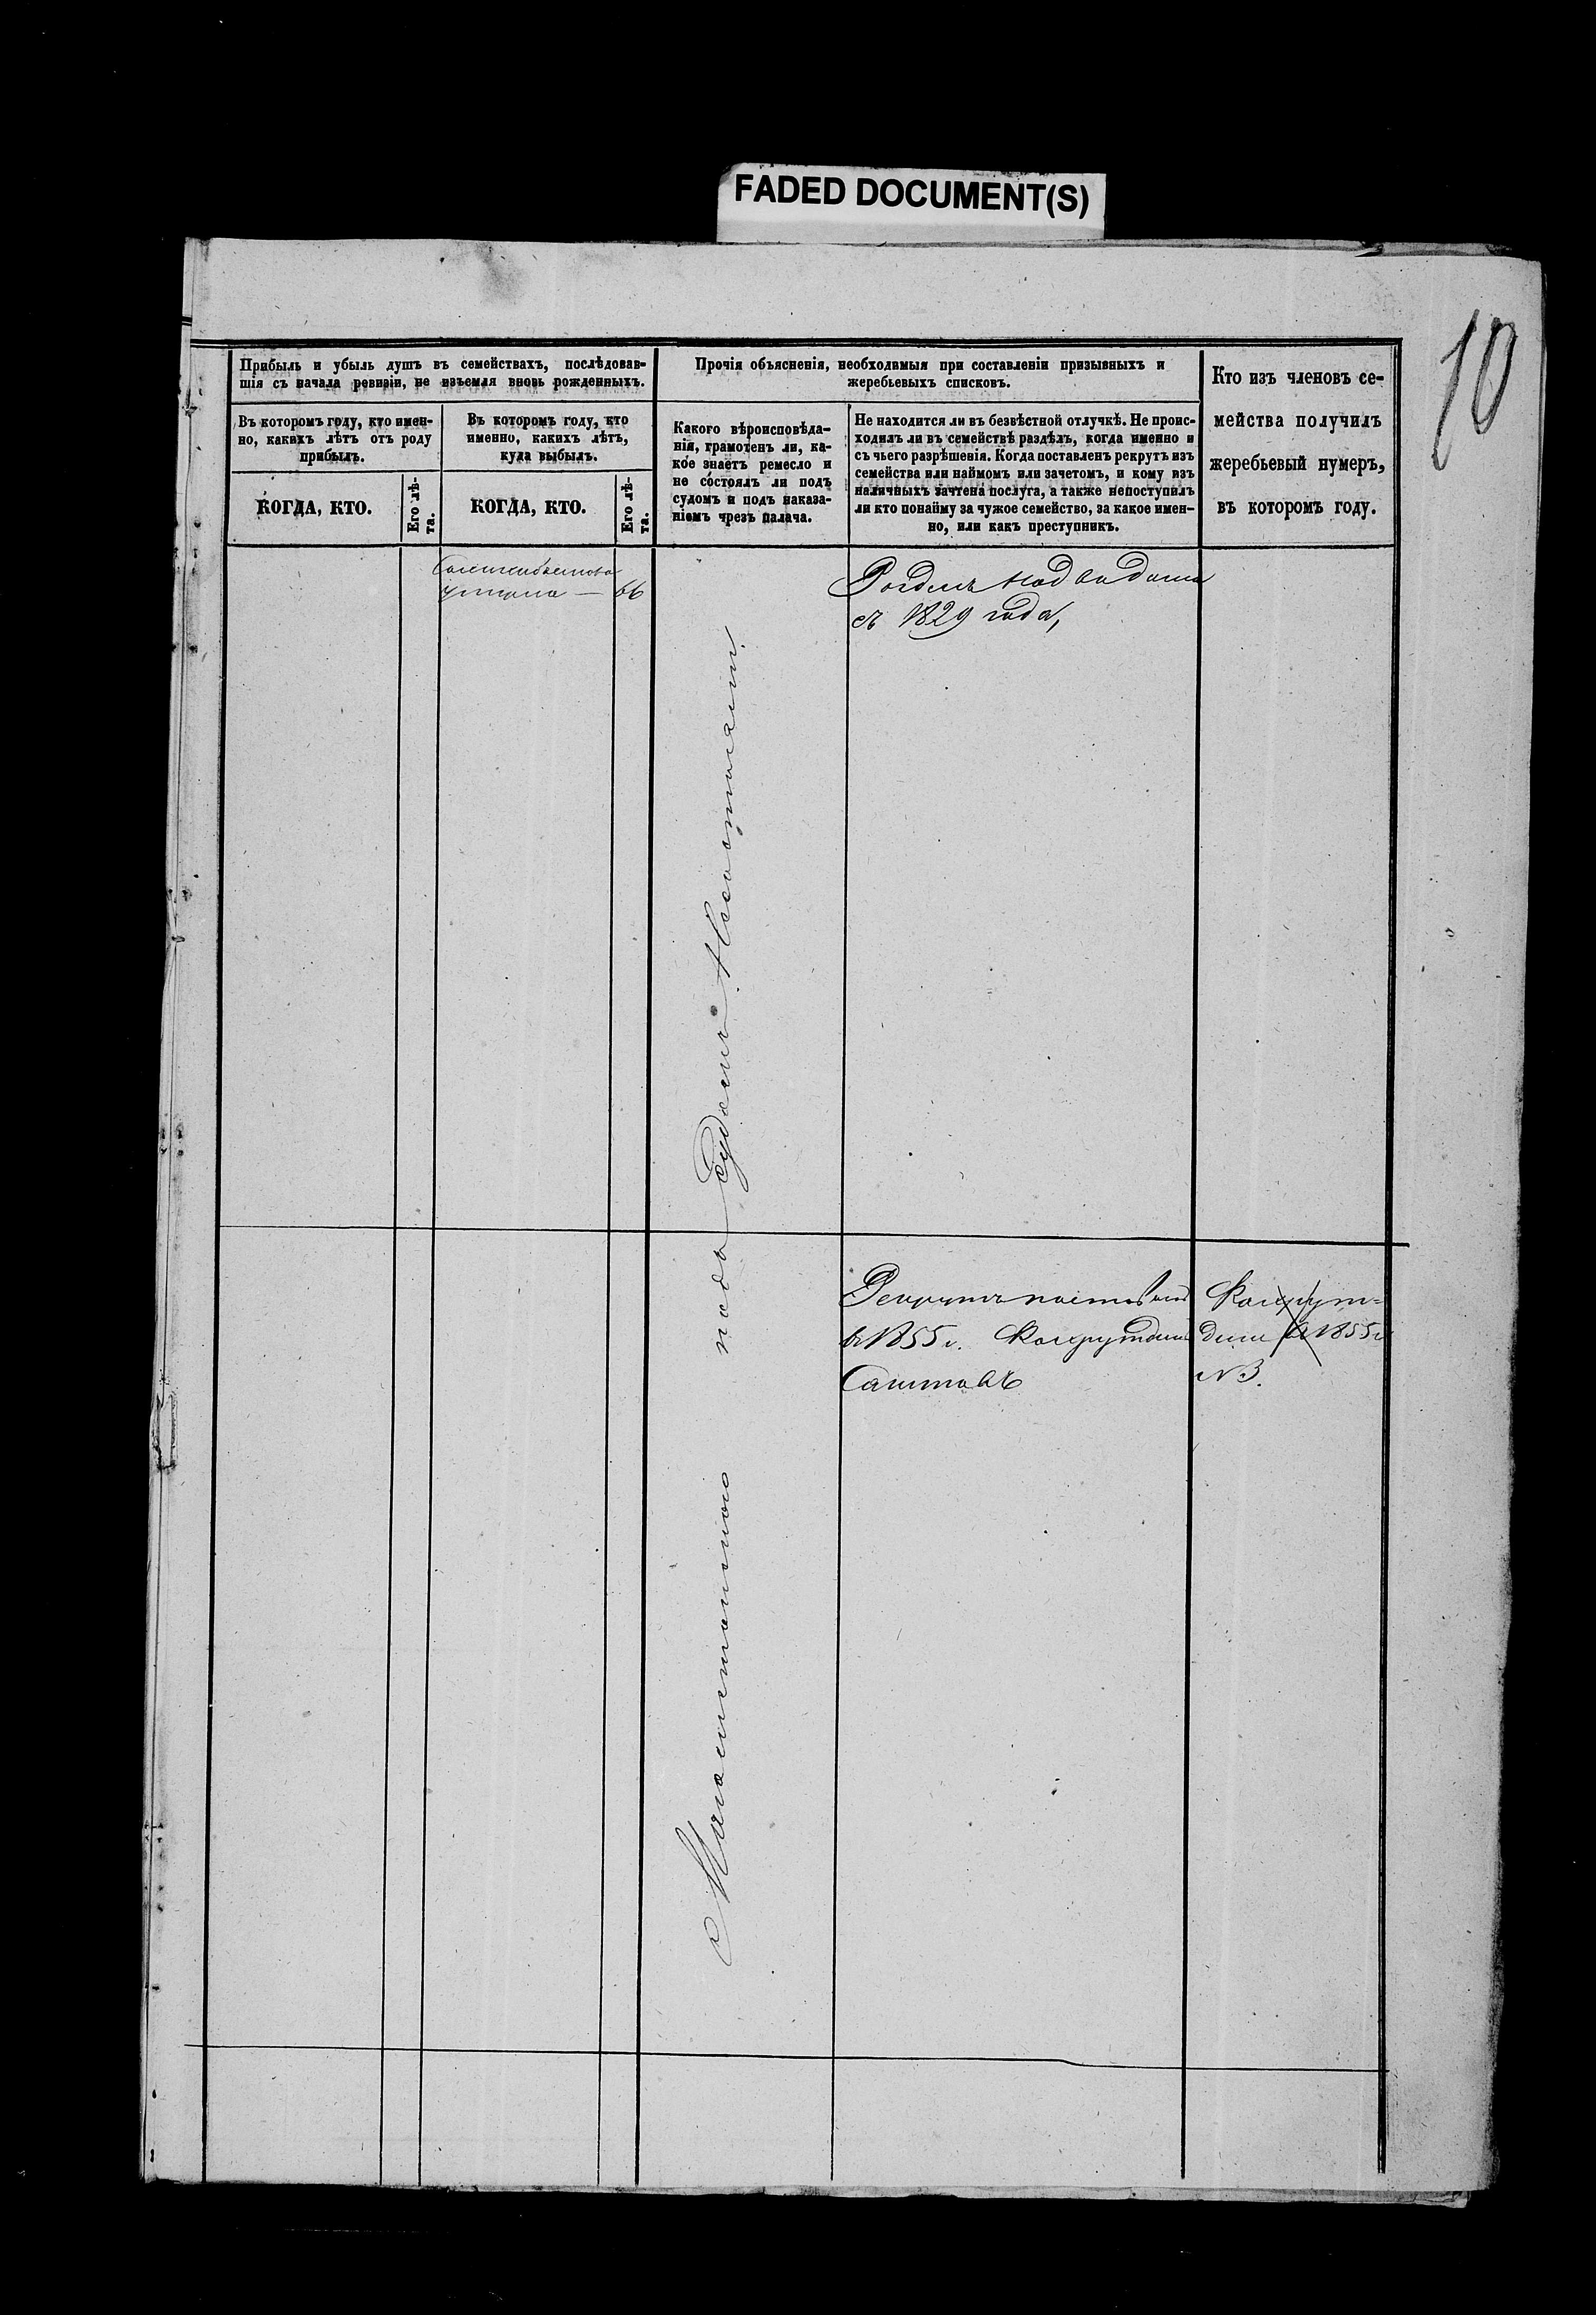 FADED DOCUMENT(S)
10
Прибыль и убыль душъ въ семействахъ, послѣдовав-
шія съ начала ревизіи, не изъемля вновь рожденныхъ.
Въ которомъ году, кто имен-
но, какихъ лѣтъ отъ роду
прибылъ.
КОГДА, КТО.
Его лѣ-
та.
Въ которомъ году, кто
именно, какихъ лѣтъ,
куда выбылъ.
КОГДА, КТО.
Его лѣ-
та.
Прочія объясненія, необходимыя при составленіи призывныхъ и
жеребьевыхъ списковъ.
Какого вѣроисповѣда-
нія, грамотенъ ли, ка-
кое знаетъ ремесло и
не состоялъ ли подъ
судомъ и подъ наказа-
ніемъ чрезъ палача.
Не находится ли въ безвѣстной отлучкѣ. Не проис-
ходилъ ли въ семействѣ раздѣлъ, когда именно и
съ чьего разрѣшенія. Когда поставленъ рекрутъ изъ
семейства или наймомъ или зачетомъ, и кому изъ
наличныхъ зачтена послуга, а также непоступилъ
ли кто понайму за чужое семейство, за какое имен-
но, или какъ преступникъ.
Кто изъ членовъ се-
мейства получилъ
жеребьевый нумеръ,
въ которомъ году.
66
съ 1829 года,
Магометанскаго подъ судомъ несостояли
Рекрутъ
в 1855 г.
Саитовъ
1855 г
№ 3.